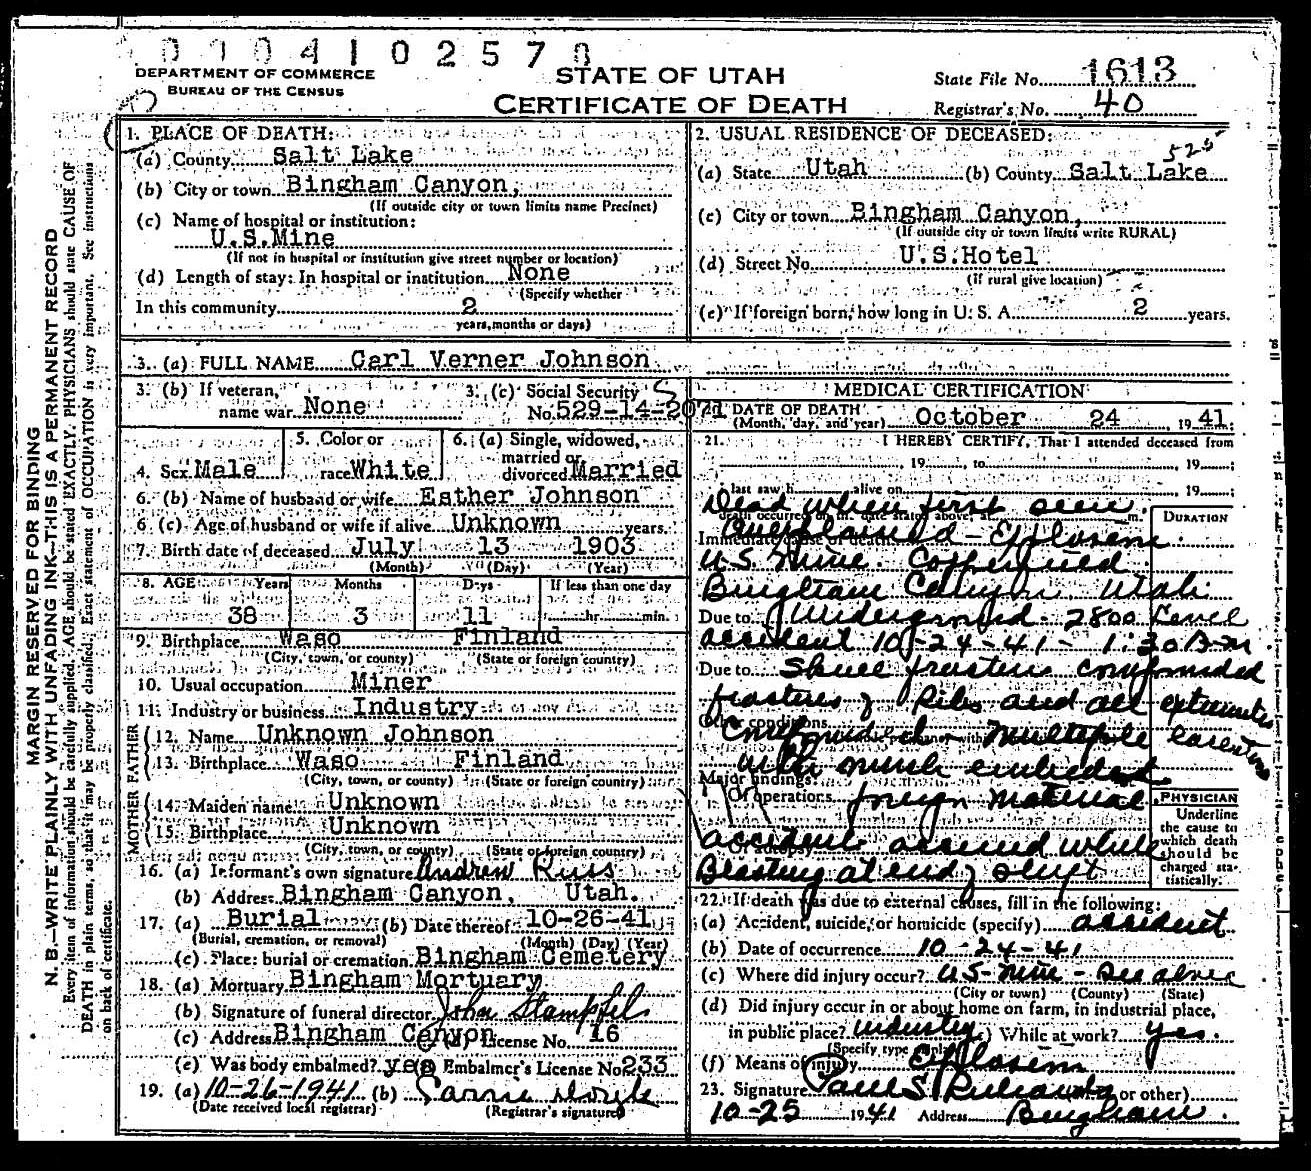 0 9 0 4 1 0 2 5 7 8
DEPARTMENT OF COMMERCE
BUREAU OF THE CENSUS
STATE OF UTAH
CERTIFICATE OF DEATH
State File No. 1613
Registrar's No. 40
MARGIN RESERVED FOR BINDING
N. B.—WRITE PLAINLY WITH UNFADING INK—THIS IS A PERMANENT RECORD
Every item of information should be carefully supplied. AGE should be stated EXACTLY. PHYSICIANS should state CAUSE OF
DEATH in plain terms, so that it may be properly classified. Exact statement of OCCUPATION is very important. See instructions
on back of certificate.
1. PLACE OF DEATH:
(a) County Salt Lake
(b) City or town Bingham Canyon,
(If outside city or town limits name Precinct)
(c) Name of hospital or institution:
U.S.Mine
(If not in hospital or institution give street number or location)
(d) Length of stay: In hospital or institution None
(Specify whether
In this community 2
years, months or days)
2. USUAL RESIDENCE OF DECEASED:
(a) State Utah (b) County Salt Lake
(c) City or town Bingham Canyon,
(If outside city or town limits write RURAL)
(d) Street No. U.S.Hotel
(If rural give location)
(e) If foreign born, how long in U. S. A. 2 years.
3. (a) FULL NAME Carl Verner Johnson
3. (b) If veteran,
name war None
3. (c) Social Security
No. 529-14-2071
4. Sex Male
5. Color or
race White
6. (a) Single, widowed,
married or
divorced Married
6. (b) Name of husband or wife Esther Johnson
6 (c). Age of husband or wife if alive Unknown years
7. Birth date of deceased July 13 1903
(Month) (Day) (Year)
8. AGE Years Months Days If less than one day
38 3 11 hr. min.
9. Birthplace Waso Finland
(City, town, or county) (State or foreign country)
10. Usual occupation Miner
11. Industry or business Industry
FATHER
12. Name Unknown Johnson
13. Birthplace Waso Finland
(City, town, or county) (State or foreign country)
MOTHER
14. Maiden name Unknown
15. Birthplace Unknown
(City, town, or county) (State or foreign country)
16. (a) Informant's own signature Andrew Russ
(b) Address Bingham Canyon, Utah.
17. (a) Burial (b) Date thereof 10-26-41
(Burial, cremation, or removal) (Month) (Day) (Year)
(c) Place: burial or cremation Bingham Cemetery
18. (a) Mortuary Bingham Mortuary
(b) Signature of funeral director John Stampfel
(c) Address Bingham Canyon (d) License No. 16
(e) Was body embalmed? yes Embalmer's License No 233
19. (a) 10-26-1941 (b)
(Date received local registrar) (Registrar's signature)
MEDICAL CERTIFICATION
20. DATE OF DEATH October 24 1941
(Month, day, and year)
21. I HEREBY CERTIFY, That I attended deceased from
19 , to 19 ;
I last saw h alive on 19 ;
Dead when first seen.
death occurred on the date stated above, at m.
DURATION
Immediate cause of death - Explosion
U.S. Mine. Copperfield
Bingham Canyon Utah
Due to Underground. 2800 Level
accident 10-24-41 - 1:30
Due to Skull fracture compounded
fractures of Ribs and all extremities
Other conditions
Compounded - Multiple
with much embedded
Major findings:
Of operations foreign material
PHYSICIAN
Underline
the cause to
which death
should be
charged statistically.
Of autopsy
accident occurred while
Blasting at end of shift
22. If death was due to external causes, fill in the following:
(a) Accident, suicide, or homicide (specify) accident
(b) Date of occurrence 10-24-41
(c) Where did injury occur? U.S. Mine - See above
(City or town) (County) (State)
(d) Did injury occur in or about home on farm, in industrial place,
in public place? industry While at work? yes.
(Specify type of place)
(f) Means of injury Explosion
23. Signature Paul S. Richards or other)
10-25 1941 Address Bingham.